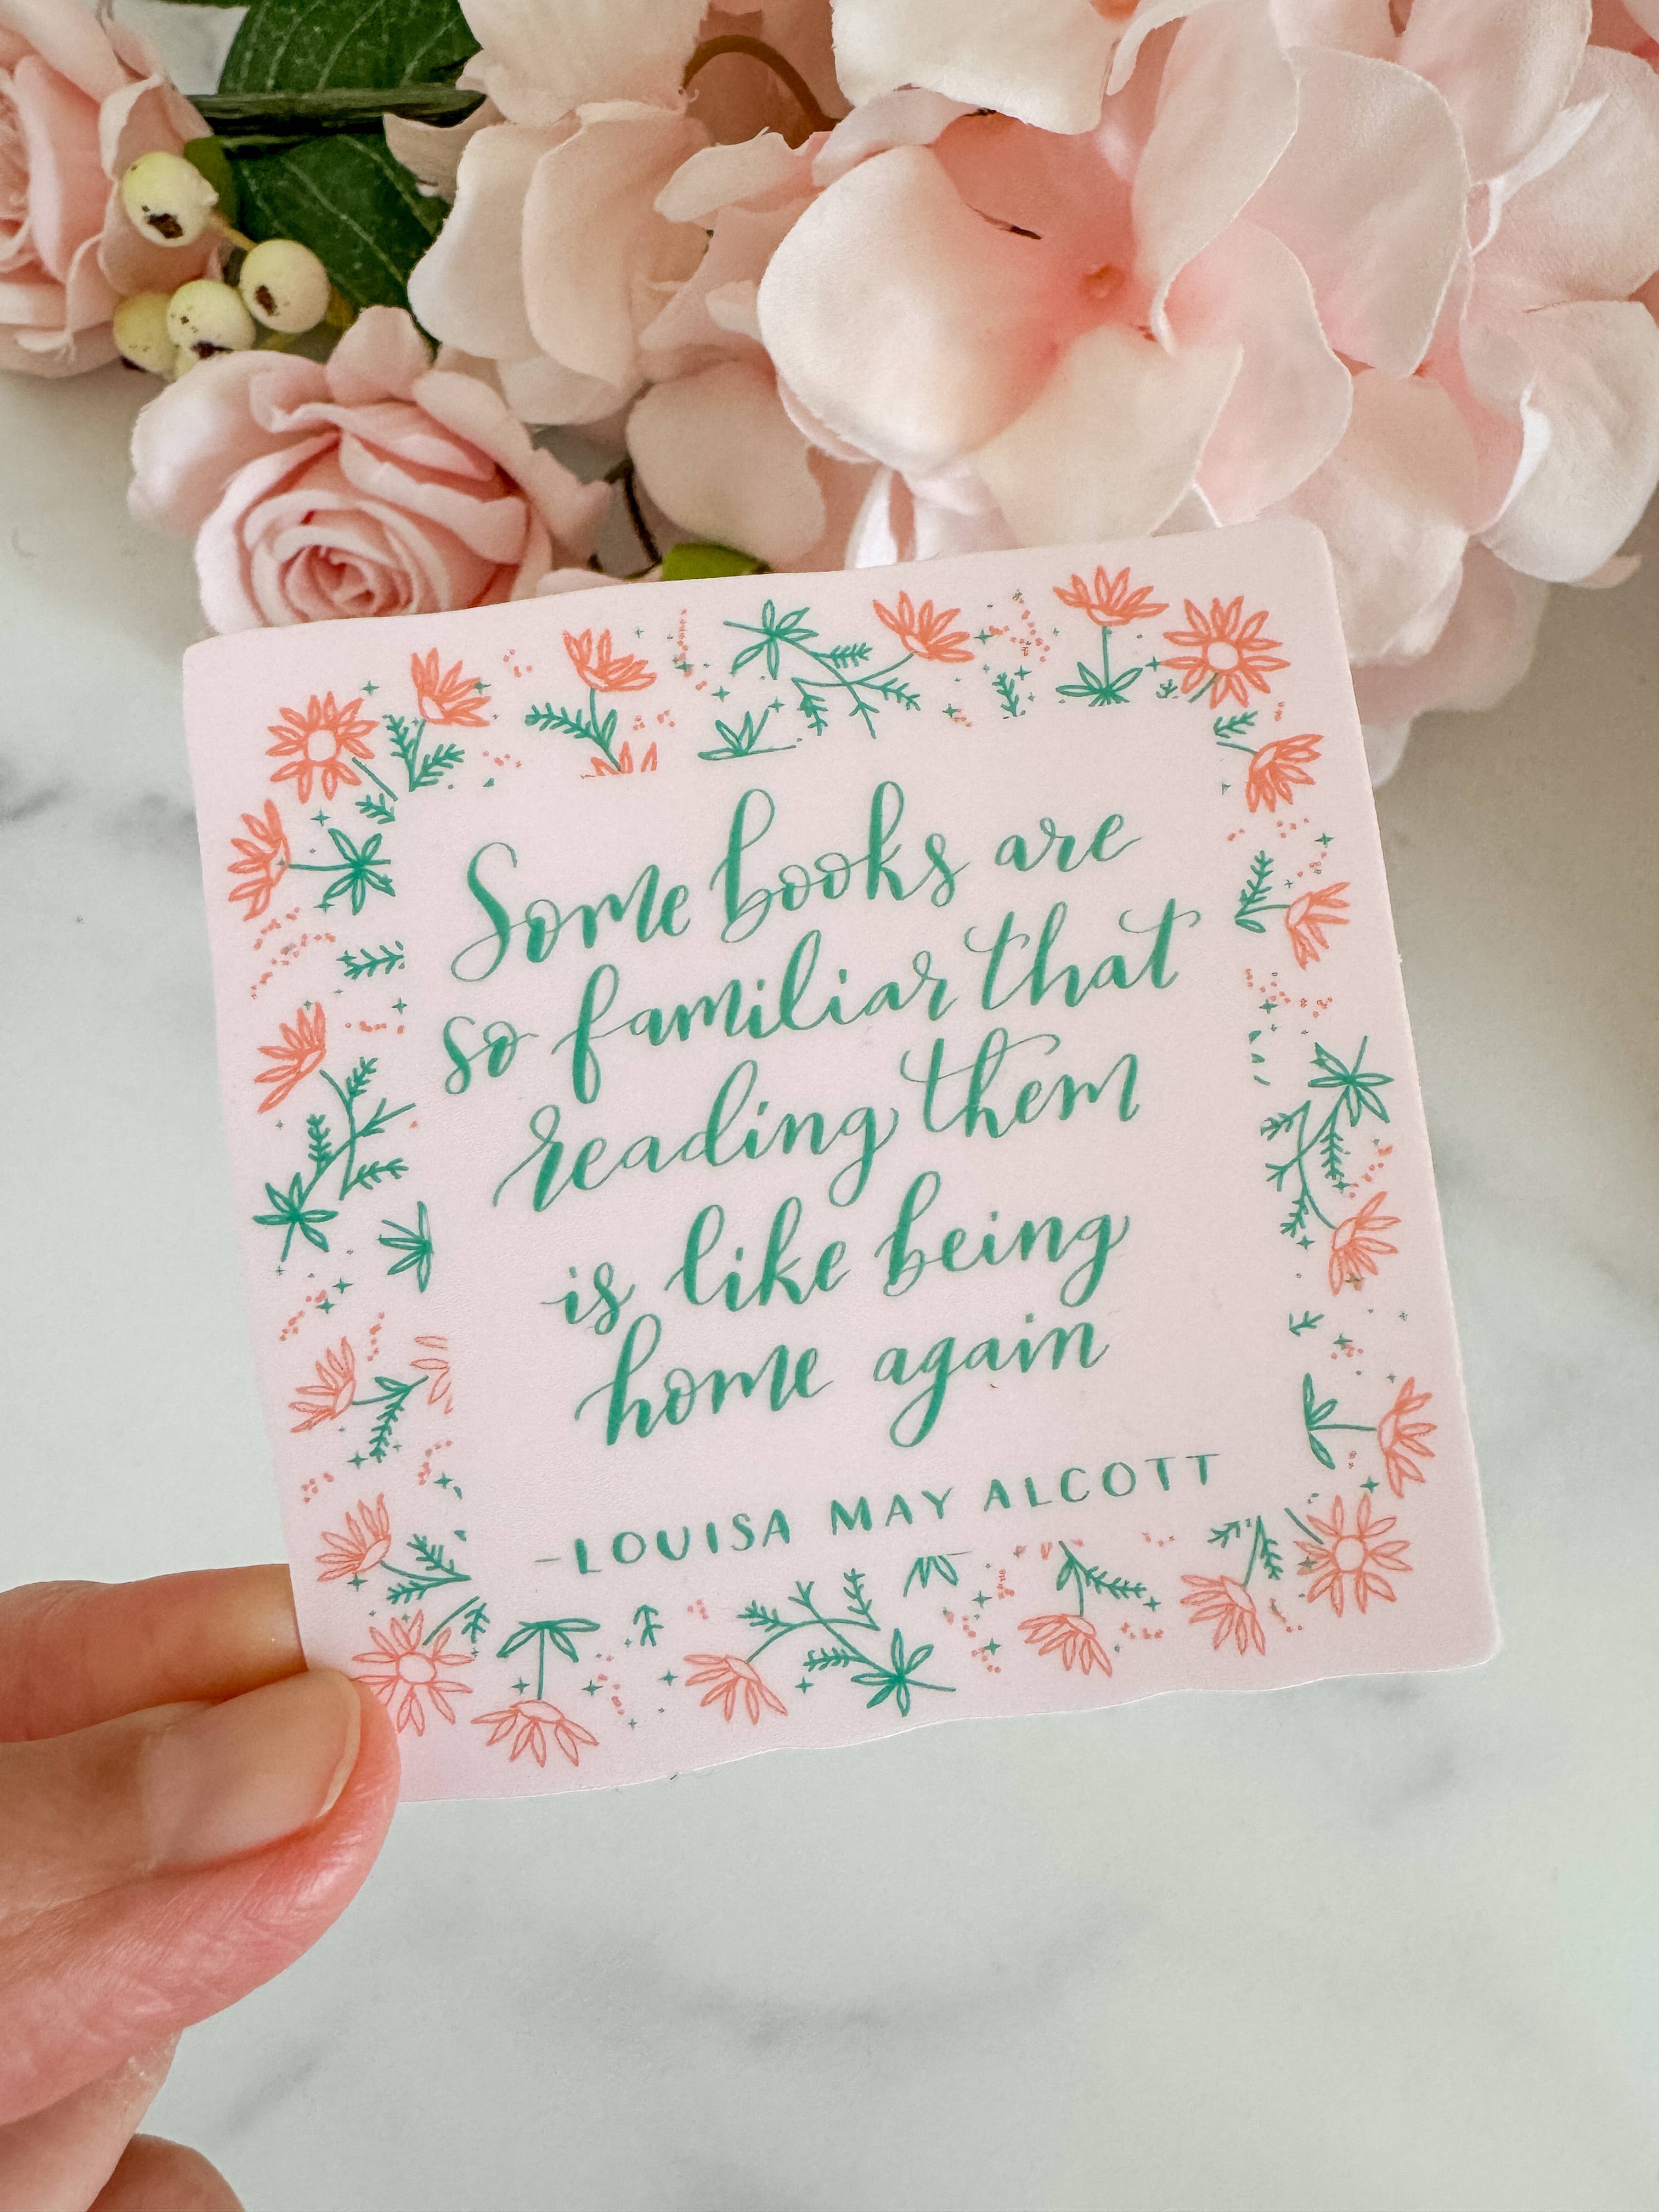 Some books are
so familiar that
reading them
is like being
home again
-LOUISA MAY ALCOTT